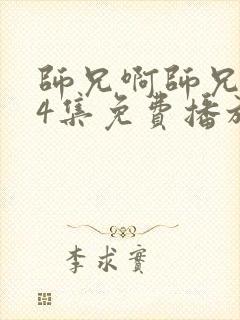 師兄啊師兄
4集免費播放
李求實